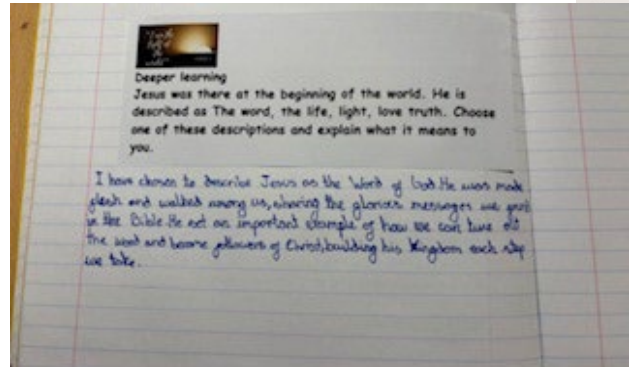 Deeper learning
Jesus was there at the beginning of the world. He is
described as The word, the life, light, love truth. Choose
one of these descriptions and explain what it means to
you.
I have chosen to describe Jesus as the Word of God. He was made
flesh and walked among us, sharing the glorious messages we
in the Bible. He set an important example of how we can live out
the word and become followers of Christ, building his Kingdom each step
we take.